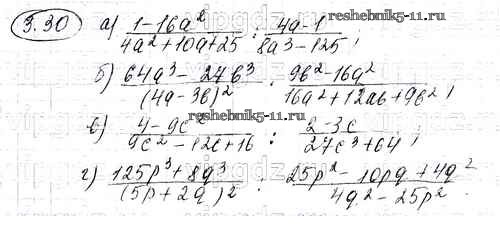 3.30 а) (1-16a²)/(4a²+10a+25) : (4a-1)/(8a³-125);
б) (64a³-27b³)/(4a-3b)² · (9b²-16a²)/(16a²+12ab+9b²);
в) (4-9c²)/(9c²-12c+16) : (2-3c)/(27c³+64);
г) (125p³+8q³)/(5p+2q)² · (25p²-10pq+4q²)/(4q²-25p²)
reshebnik5-11.ru
reshebnik5-11.ru